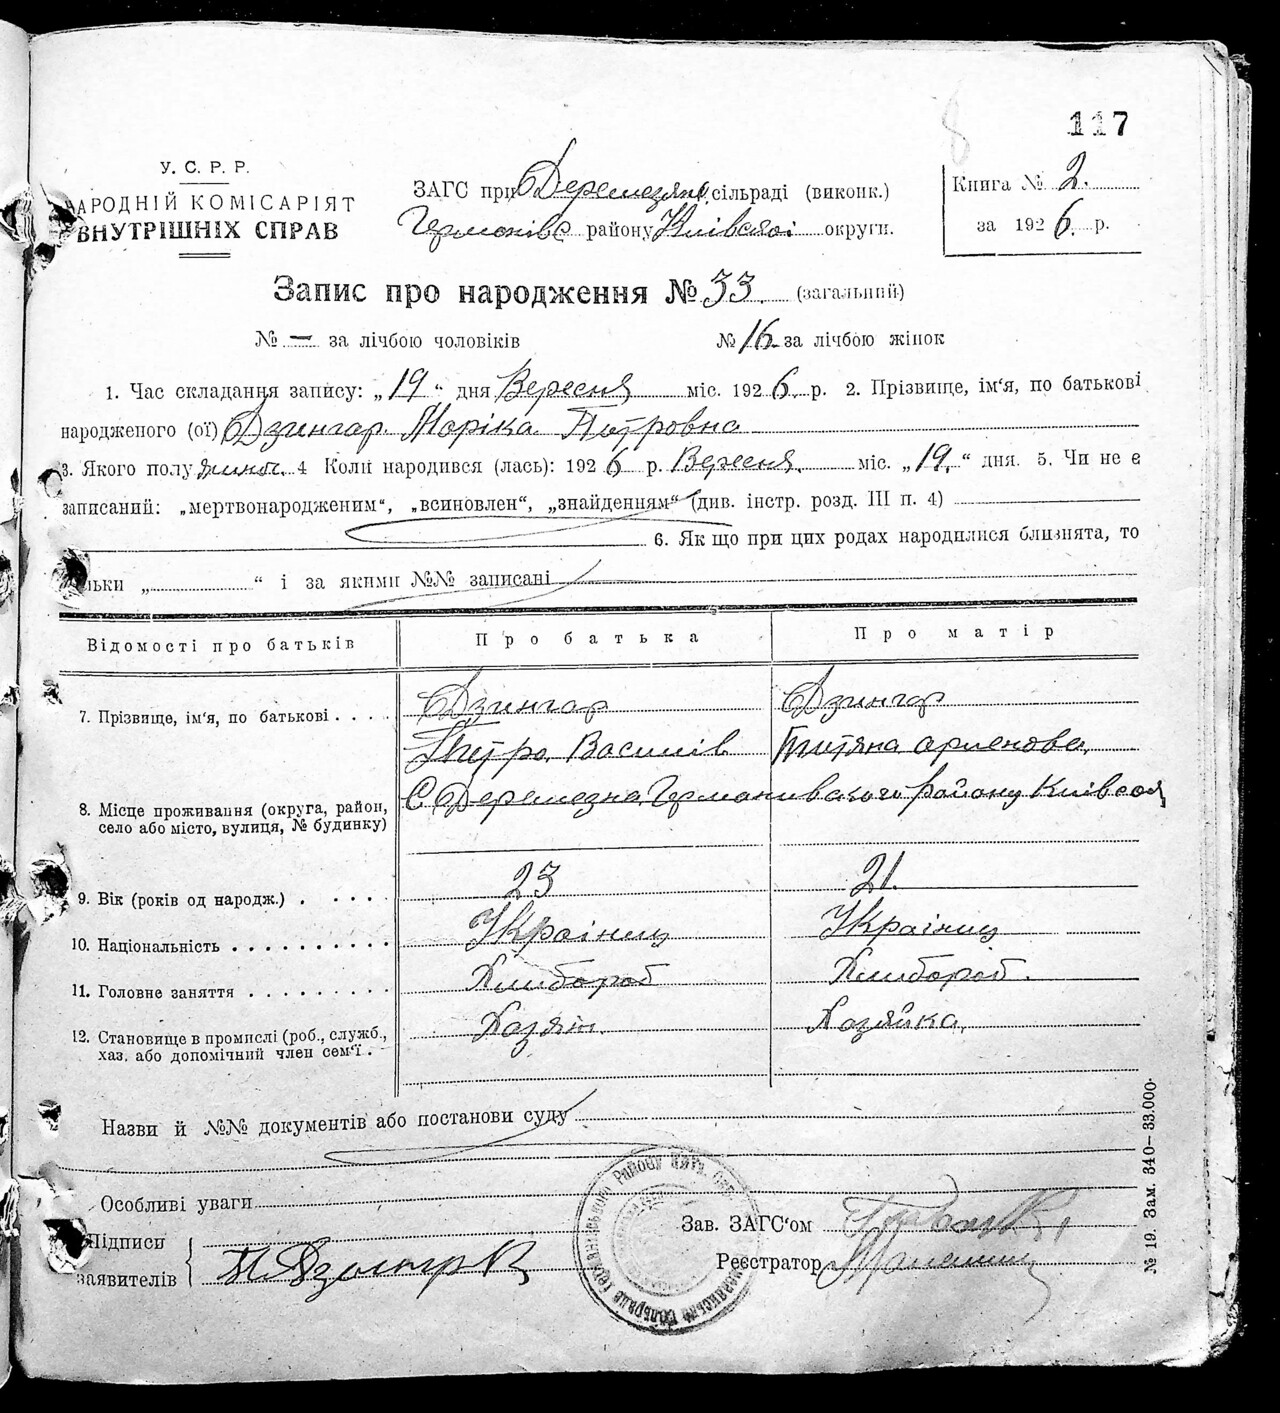 8
117
У. С. Р. Р.
НАРОДНІЙ КОМІСАРІЯТ
ВНУТРІШНІХ СПРАВ
ЗАГС при Деремезян. сільраді (виконк.)
району Київської округи.
Книга № 2.
за 1926 р.
Запис про народження № 33. (загальний)
№ — за лічбою чоловіків № 16 за лічбою жінок
1. Час складання запису: „19“ дня Вересня міс. 1926 р. 2. Прізвище, ім‘я, по батькові
народженого (ої) Дзингар Моріка Петровна
3. Якого полу жіноч. 4 Коли народився (лась): 1926 р. Вересня. міс. „19.“ дня. 5. Чи не є
записаний: „мертвонародженим“, „всиновлен“, „знайденням“ (див. інстр. розд. III п. 4)
6. Як що при цих родах народилися близнята, то
льки „ “ і за якими №№ записані
Відомості про батьків Про батька Про матір
7. Прізвище, ім‘я, по батькові Дзингар Дзингар
Петро Василів Титяна
8. Місце проживання (округа, район, село або місто, вулиця, № будинку) С Деремезна Германивського району Київської
9. Вік (років од народж.) 23 21.
10. Національність Україниц Україниц
11. Головне заняття Хлибороб Хлибороб.
12. Становище в промислі (роб., служб., хаз. або допомічний член сем‘ї. Хозяін. Хозяйка.
Назви й №№ документів або постанови суду
Особливі уваги
Підписи
заявителів
Зав. ЗАГС‘ом
Реєстратор
№ 19. Зам. 340–33.000.